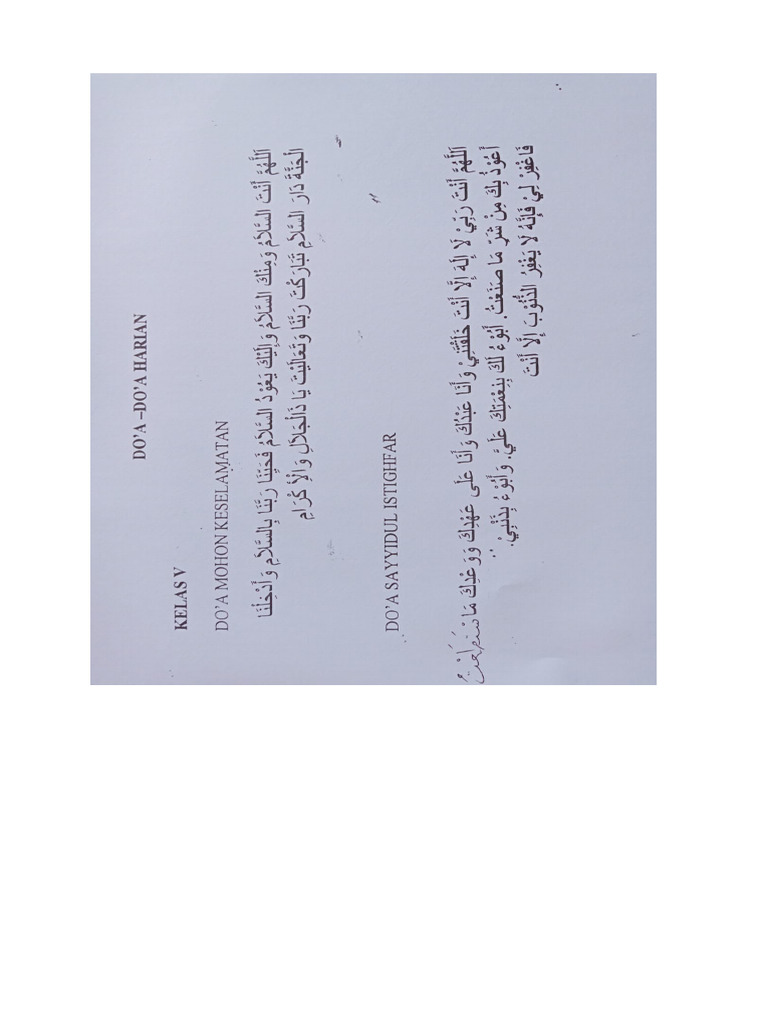 DO'A –DO'A HARIAN
KELAS V
DO'A MOHON KESELAMATAN
اَللّٰهُمَّ أَنْتَ السَّلاَمُ وَمِنْكَ السَّلاَمُ وَإِلَيْكَ يَعُوْدُ السَّلاَمُ فَحَيِّنَا رَبَّنَا بِالسَّلاَمِ وَأَدْخِلْنَا
الْجَنَّةَ دَارَ السَّلاَمِ تَبَارَكْتَ رَبَّنَا وَتَعَالَيْتَ يَا ذَالْجَلاَلِ وَالْإِكْرَامِ
DO'A SAYYIDUL ISTIGHFAR
اَللّٰهُمَّ أَنْتَ رَبِّيْ لَا إِلٰهَ إِلَّا أَنْتَ خَلَقْتَنِيْ وَأَنَا عَبْدُكَ وَأَنَا عَلَى عَهْدِكَ وَوَعْدِكَ مَاسْتَطَعْتُ
أَعُوْذُ بِكَ مِنْ شَرِّ مَا صَنَعْتُ. أَبُوْءُ لَكَ بِنِعْمَتِكَ عَلَيَّ. وَأَبُوْءُ بِذَنْبِيْ.
فَاغْفِرْ لِيْ فَإِنَّهُ لَا يَغْفِرُ الذُّنُوْبَ إِلَّا أَنْتَ